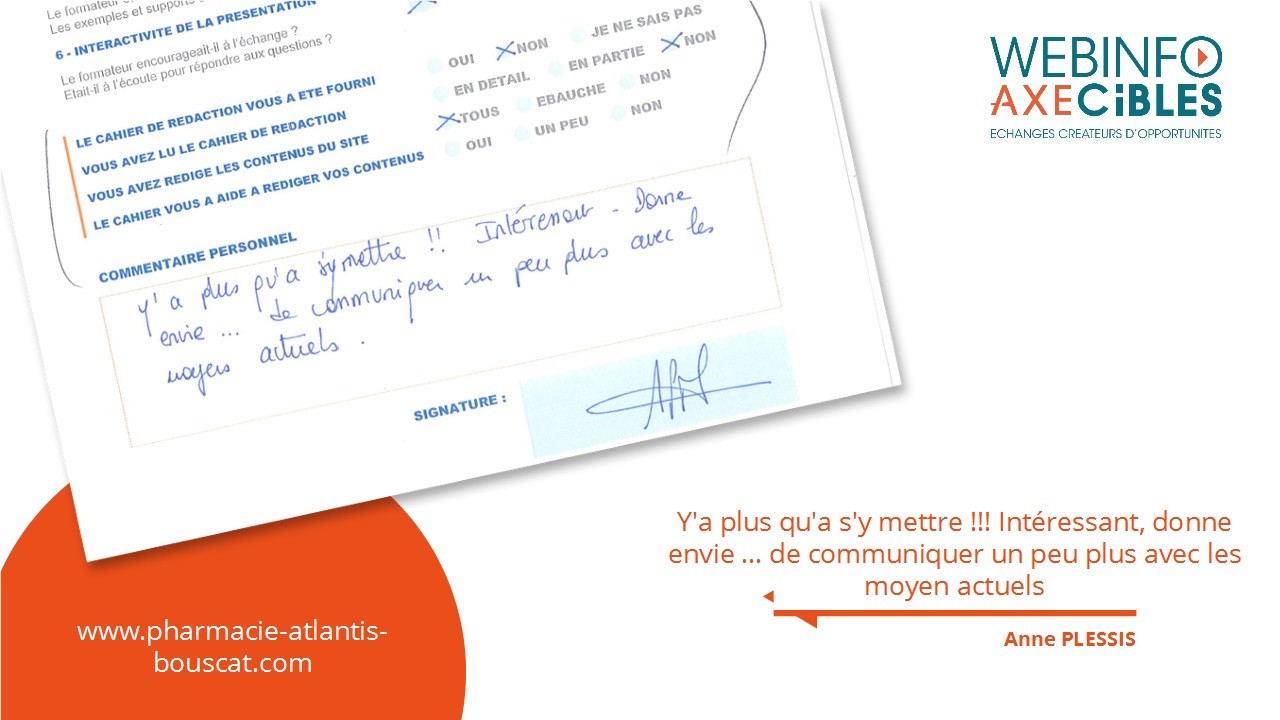 Le formateur
Les exemples et supports
6 - INTERACTIVITE DE LA PRESENTATION
Le formateur encourageait-il à l'échange ?
Etait-il à l'écoute pour répondre aux questions ?
LE CAHIER DE REDACTION VOUS A ETE FOURNI
OUI NON JE NE SAIS PAS
VOUS AVEZ LU LE CAHIER DE REDACTION
EN DETAIL EN PARTIE NON
VOUS AVEZ REDIGE LES CONTENUS DU SITE
TOUS EBAUCHE NON
LE CAHIER VOUS A AIDE A REDIGER VOS CONTENUS
OUI UN PEU NON
COMMENTAIRE PERSONNEL
Y'a plus qu'a s'y mettre !! Intéressant - Donne
envie ... de communiquer un peu plus avec les
moyens actuels .
SIGNATURE :
WEBINFO
AXECIBLES
ECHANGES CREATEURS D'OPPORTUNITES
Y'a plus qu'a s'y mettre !!! Intéressant, donne
envie ... de communiquer un peu plus avec les
moyen actuels
Anne PLESSIS
www.pharmacie-atlantis-
bouscat.com